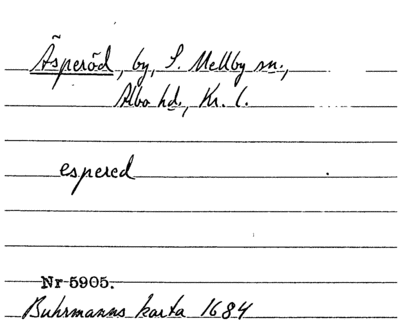 Äsperöd, by, S. Mellby sn.,
Albo hd., Kr. l.
espered
Nr 5905.
Buhrmanns karta 1684